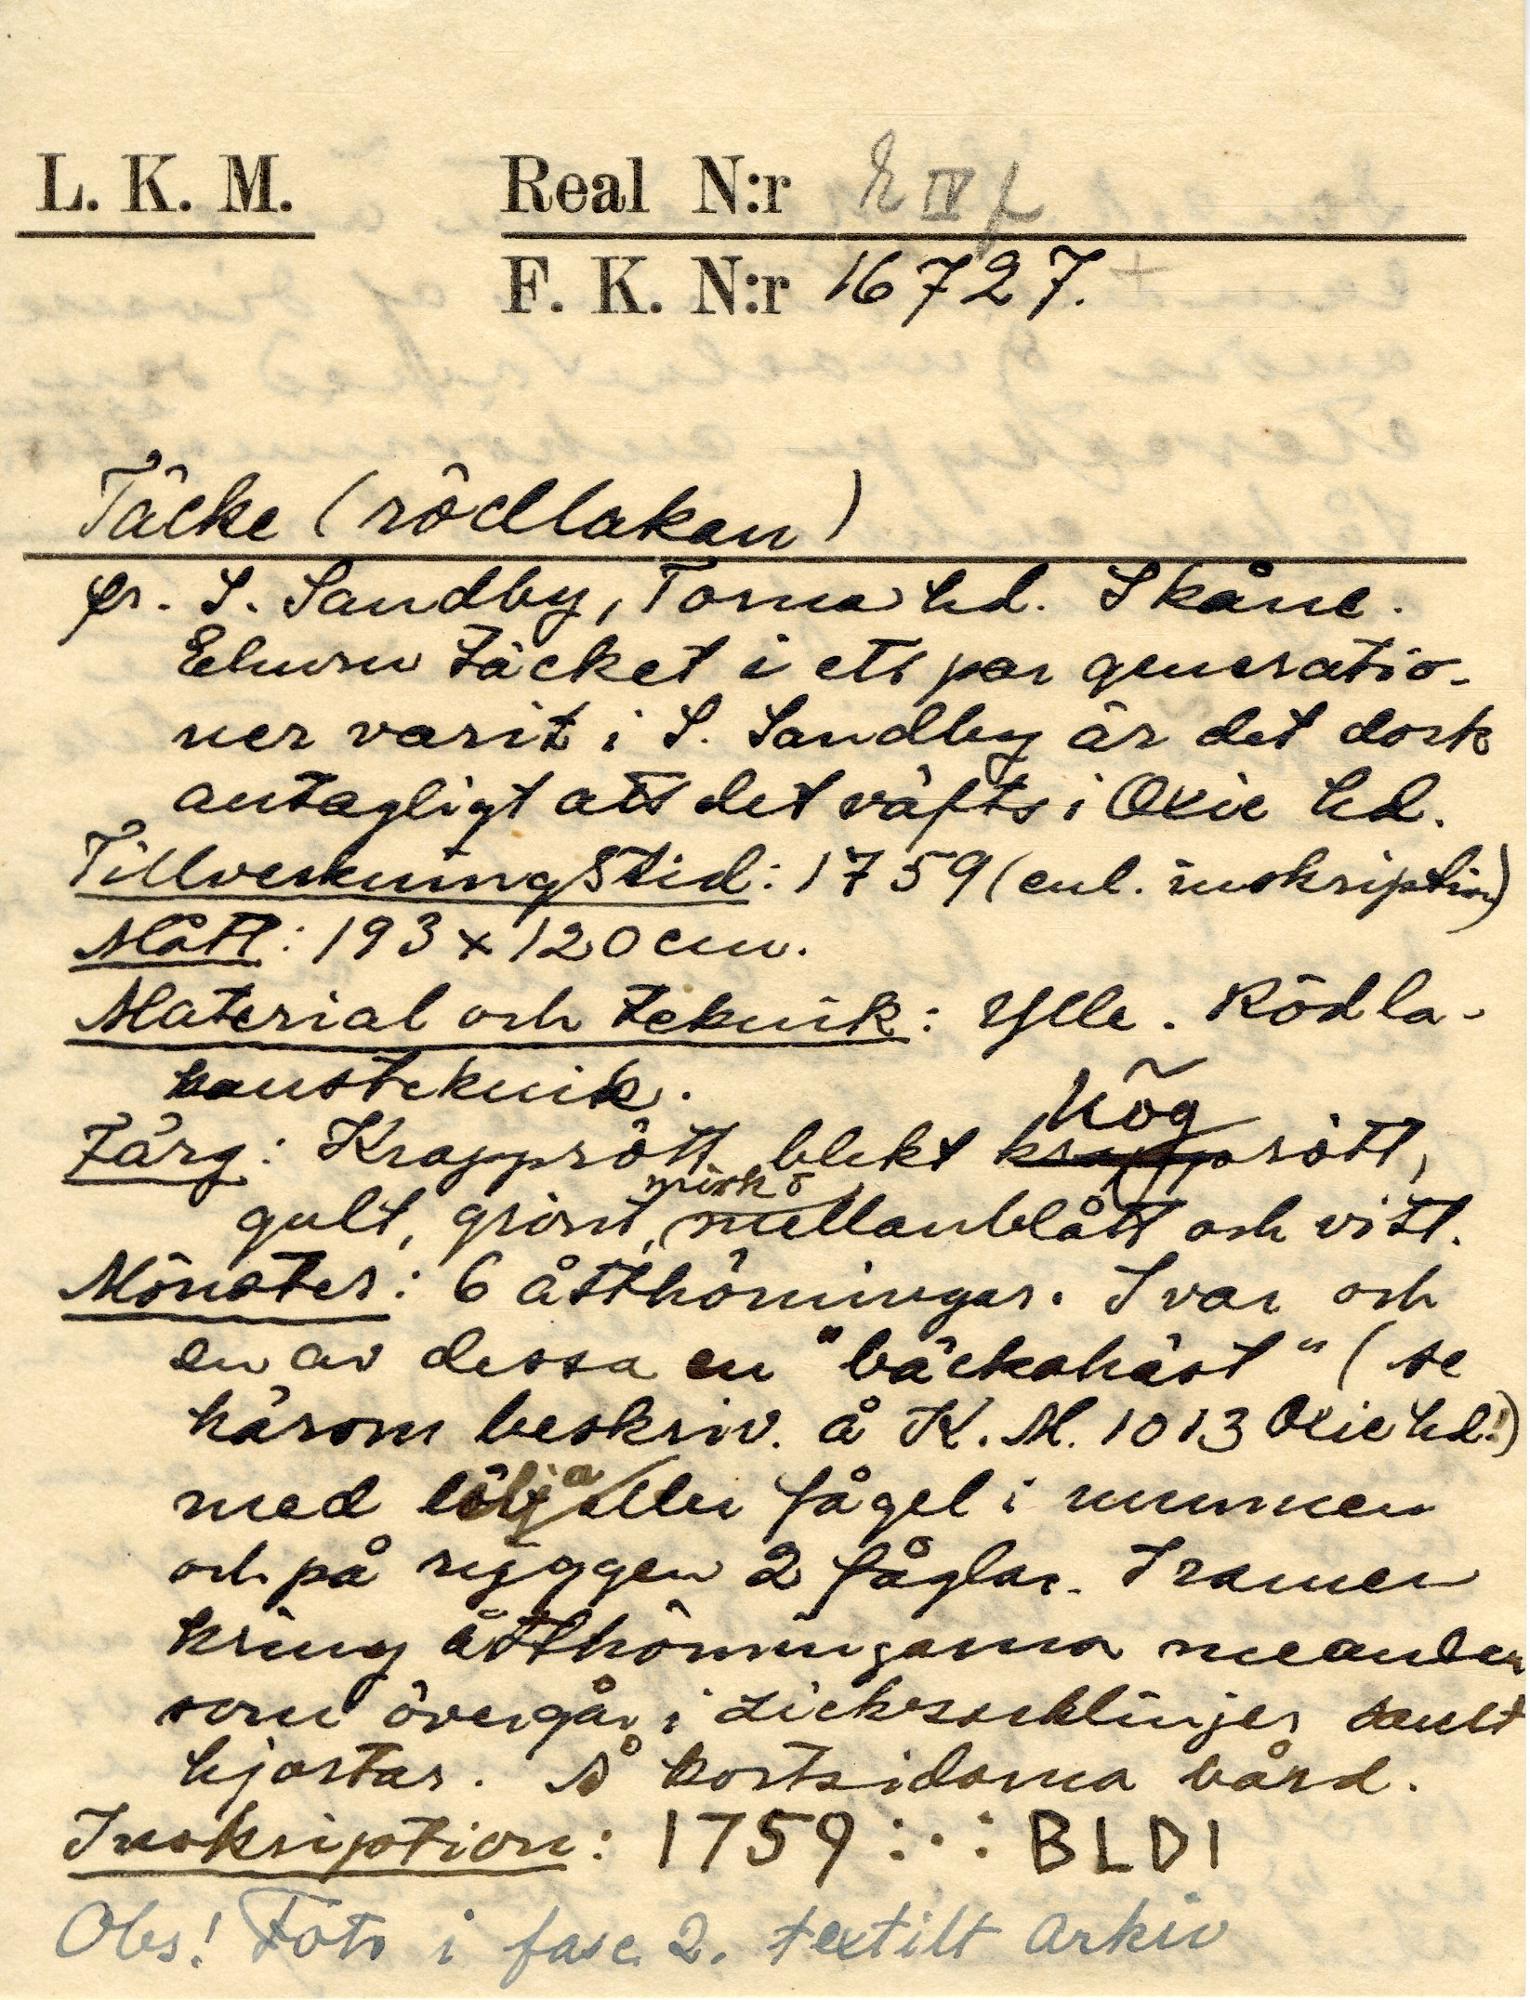 L. K. M. Real N:r IV
F. K. N:r 16727.
Täcke (rödlakan)
fr. S. Sandby, Torna hd. Skåne.
Ehuru täcket i ett par generatio-
ner varit i S. Sandby är det dock
antagligt att det väfts i Oxie hd.
Tillverkningstid: 1759 (enl. inskription)
Mått: 193 x 120 cm.
Material och teknik: Ylle. Rödla-
kansteknik.
hög
Färg: Krapprött, blekt krapprött,
mörk o
gult, grönt, mellanblått och vitt.
Mönster: 6 åtthörningar. I var och
en av dessa en "bäckahäst" (se
härom beskriv. å K. M. 1013 Oxie hd.!)
med eller fågel i munnen
och på ryggen 2 fåglar. Framen
kring åtthörningarna meander
som övergår i sicksacklinjer samt
hjortar. Å kortsidorna bård.
Inskription: 1759 BLDI
Obs! Foto i fasc. 2. textilt arkiv